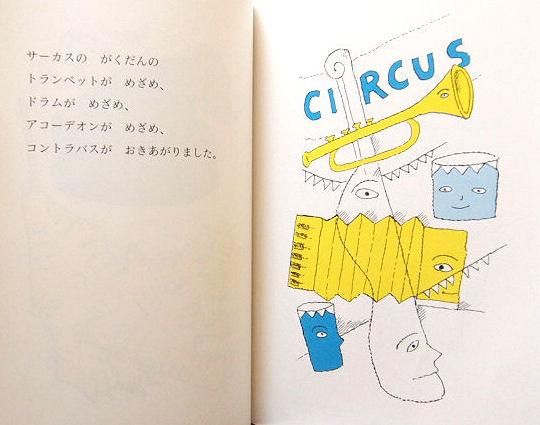 サーカスの　がくだんの
トランペットが　めざめ、
ドラムが　めざめ、
アコーデオンが　めざめ、
コントラバスが　おきあがりました。
CIRCUS